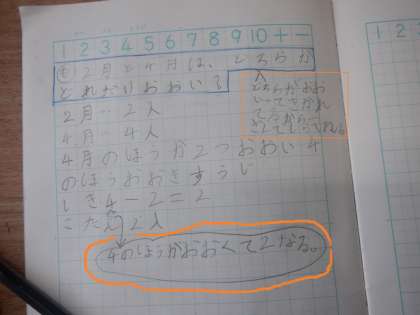 1 2 3 4 5 6 7 8 9 10 + −
も 2月と4月は、どちらが
どれだけおおい
2月 - 2人
4月 - 4人
4月のほうが2つおおい 4
のほうおおきすうじ
しき4-2=2
こたえ2人
4のほうがおおくて2なる。
どちらがおお
いってきかれ
てるから
1 2